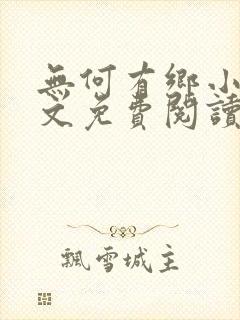 無何有鄉小
文免費閱讀
飄雪城主